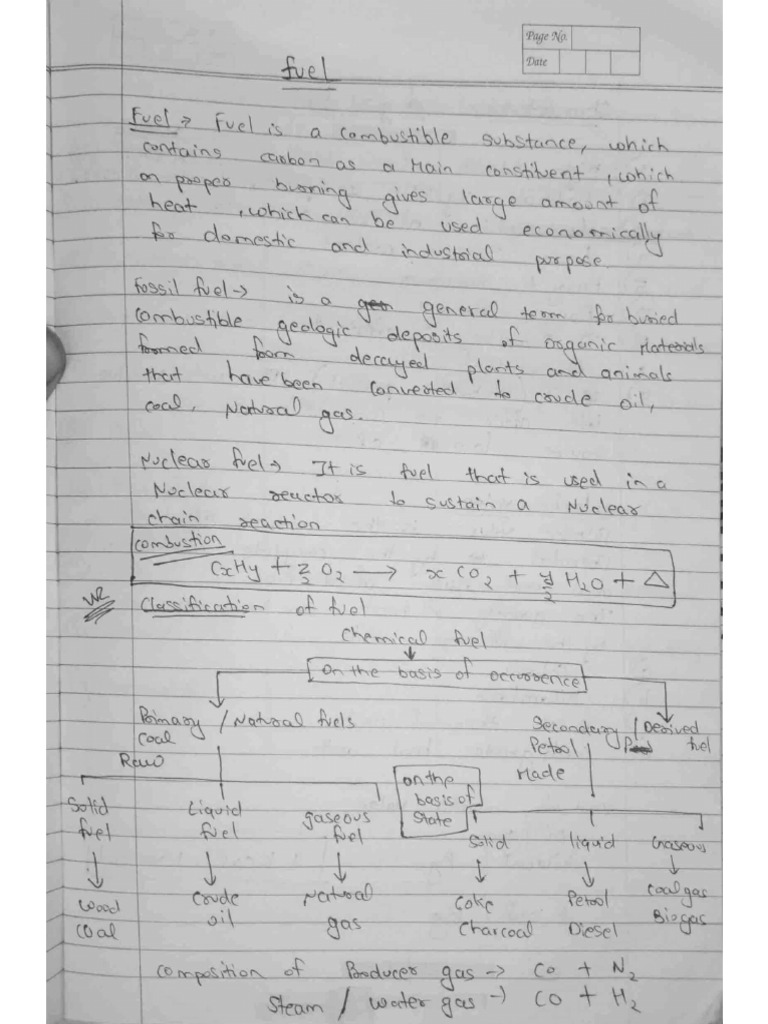 Page No.
Date
fuel
Fuel → Fuel is a combustible substance, which
contains carbon as a Main constituent, which
on proper burning gives large amount of
heat, which can be used economically
for domestic and industrial purpose
Fossil fuel → is a general term for buried
combustible geologic deposits of organic Materials
formed from decayed plants and animals
that have been converted to crude oil,
coal, Natural gas.
Nuclear fuel → It is fuel that is used in a
Nuclear reactor to sustain a Nuclear
chain reaction
Combustion
CxHy + z/2 O2 → x CO2 + y/2 H2O + Δ
Classification of fuel
Chemical fuel
On the basis of occurrence
Primary / Natural fuels
Coal
Raw
Secondary / Derived
Petrol fuel
Made
on the
basis of
state
Solid
fuel
Liquid
fuel
gaseous
fuel
Solid
liquid
Gaseous
Wood
Coal
Crude
oil
Natural
gas
Coke
Charcoal
Petrol
Diesel
Coal gas
Biogas
Composition of Producer gas → CO + N2
Steam / Water gas → CO + H2